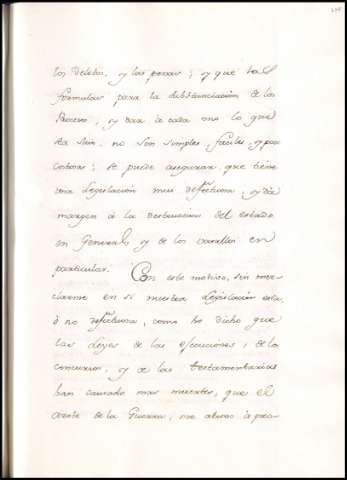 los delitos, y las penas; y que las
formulas para la substanciacion de los
Procesos, y dar a cada uno lo que
es suio, no son simples, faciles, y poco
costosas; se puede asegurar, que tiene
una Legislación mui defectuosa, y da
margen à la destruccion del estado
en General, y de los vasallos en
particular. Con este motivo, sin mez-
clarme en si nuestra Legislacion està,
ò no defectuosa, como he dicho que
las Leyes de las execuciones, de los
concursos, y de las testamentarias
han causado mas muertes, que el
azote de la Guerra, me atrevo à pro-